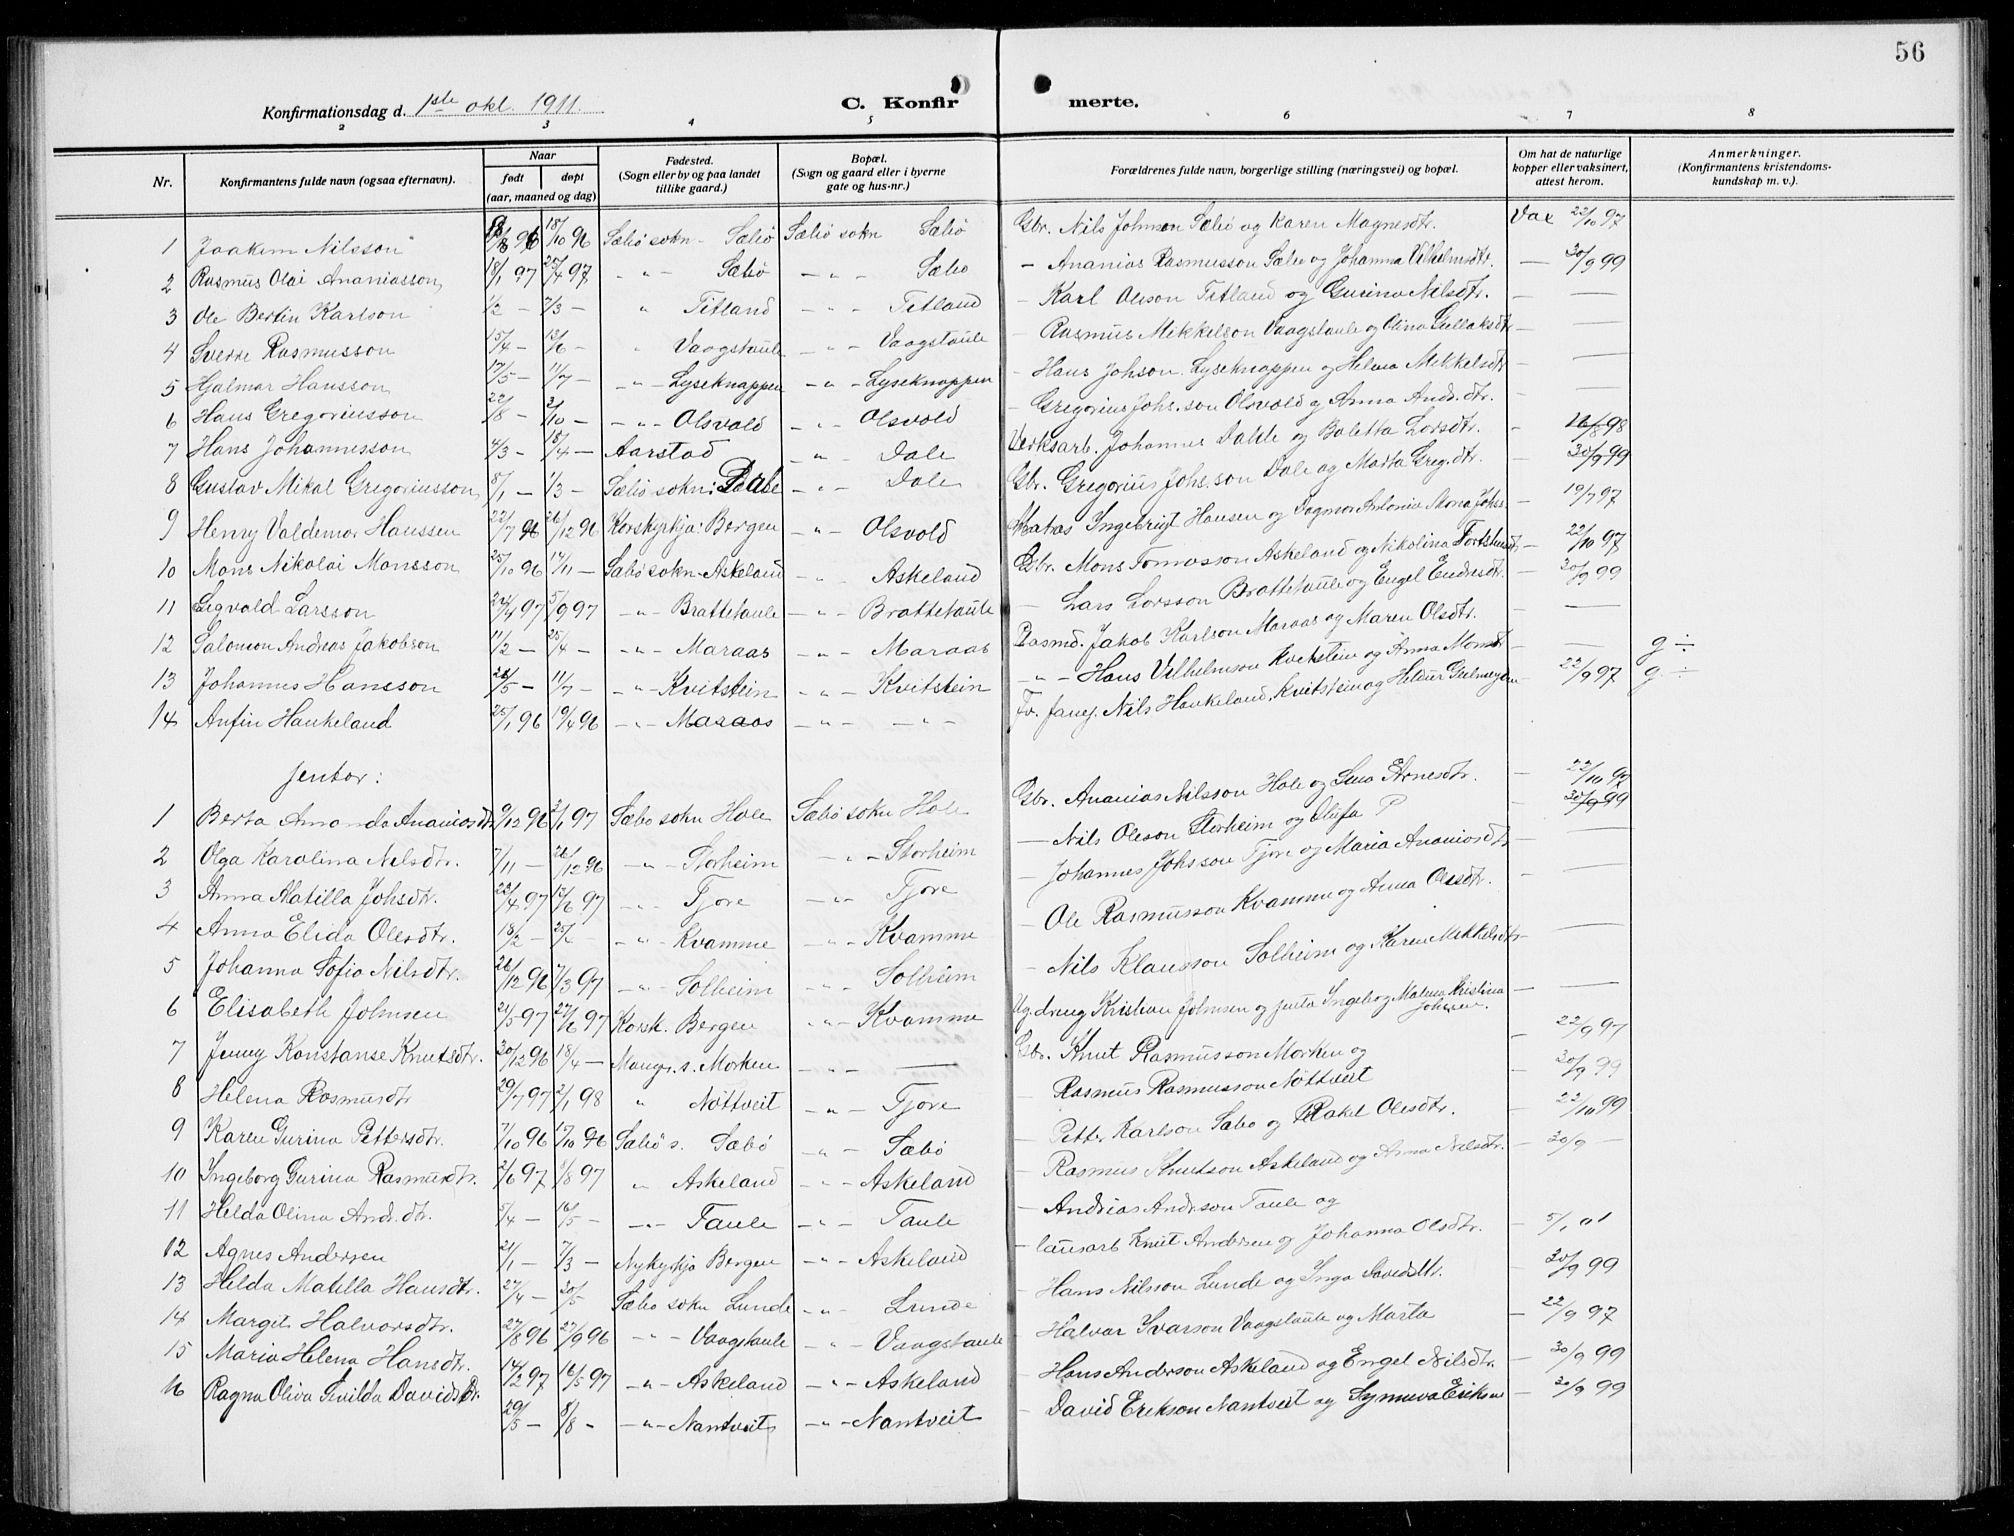 56
Konfirmationsdag d. 1ste okt. 1911.
C. Konfirmerte.
2 3 4 5 6 7 8
Nr. Konfirmantens fulde navn (ogsaa efternavn). Naar født døpt (aar, maaned og dag) Fødested. (Sogn eller by og paa landet tillike gaard.) Bopæl. (Sogn og gaard eller i byerne gate og hus-nr.) Forældrenes fulde navn, borgerlige stilling (næringsvei) og bopæl. Om hat de naturlige kopper eller vaksinert, attest herom. Anmerkninger. (Konfirmantens kristendoms-kundskap m. v.).
1 Joakim Nilsson 18/10 96 Sæbø sokn - Sæbø Sæbø sokn Sæbø Gbr. Nils Johnson Sæbø og Karen Magnesdtr. Vac 22/10 97
2 Rasmus Olai Ananiasson 18/1 97 25/4 97 - " - Sæbø - " - Sæbø - Ananias Rasmusson Sæbø og Johanna Vilhelmsdtr. - 30/9 99
3 Ole Bertin Karlson 1/2 - 7/3 - " Titland - " - Titland - Karl Oleson Titland og Gurina Nilsdtr. - —
4 Sverre Rasmusson 15/4 - 13/6 - " Vaagstaule - " - Vaagstaule - Rasmus Mikkelson Vaagstaule og Olina - —
5 Hjalmar Hansson 17/5 - 11/7 - - " - Lyseknappen - " - Lyseknappen - Hans Johson Lyseknappen og Helena Mikkelsdtr - —
6 Hans Gregoriusson 22/8 - 3/10 - - " - Olsvold - " - Olsvold - Gregorius Johs.son Olsvold og Anna And.dtr. - —
7 Hans Johannesson 4/3 - 18/4 - Aarstad - " - Dale Verksarb. Johannes Dale og Baletta Larsdtr. - 16/8 98
8 Gustav Mikal Gregoriusson 8/1 - 1/3 - Sæbø sokn: Dale - " - Dale Gbr. Gregorius Johs.son Dale og Marta Greg.dtr. - 30/9 99
9 Henry Valdemar Hanssen 22/7 96 26/12 96 Korskyrkja: Bergen - " - Olsvold Matros Ingebrigt Hansen og Dagmar Antonie Mona Johs. - 19/7 97
10 Mons Nikolai Monsson 25/10 96 14/11 - Sæbø sokn - Askeland - " - Askeland Gbr. Mons Tomasson Askeland og Nikolina - 22/10 97
11 Sigvald Larsson 24/4 97 5/9 97 - " - Brattetaule - " - Brattetaule - Lars Larsson Brattetaule og Engel Endresdtr. - 30/9 99
12 Salomon Andreas Jakobson 11/2 - 25/4 - - " - Maraas - " - Maraas Plasmd. Jakob Karlson Maraas og Maren Olsdtr. - —
13 Johannes Hansson 26/5 - 11/7 - - " - Kvitstein - " - Kvitstein - " - Hans Vilhelmson Kvitstein og Anna Monsdtr - — g ÷
14 Anfin Haukeland 25/1 96 19/4 96 - " - Maraas - " - - " - Nils Haukeland, Kvitstein og Heldur - 22/9 97 g ÷
Jentor:
1 Berta Amanda Ananiasdtr 9/12 96 3/1 97 Sæbø sokn Hole Sæbø sokn Hole Gbr. Ananias Nilsson Hole og Arnesdtr. - 22/10 97
2 Olga Karolina Nilsdtr. 7/11 - 26/12 96 - " - Storheim - " - Storheim - Nils Oleson Storheim og Olufa P - 30/9 99
3 Anna Matilla Johsdtr. 22/4 97 12/6 97 - " - Tjore - " - Tjore - Johannes Johsson Tjore og Maria Ananiasdtr - —
4 Anna Elida Olesdtr. 18/2 - 25/4 - - " - Kvamme - " - Kvamme - Ole Rasmusson Kvamme og Anna Olesdtr. - —
5 Johanna Sofia Nilsdtr. 26/12 96 7/3 97 - " - Solheim - " - Solheim - Nils Klausson Solheim og Karen Mikkelsdtr - —
6 Elisabeth Johnsen 21/5 97 27/6 97 Korsk. Bergen - " - Kvamme Ug. dreng Kristian Johnsen og jenta Ingeborg Malena Kristina Johnsen. - —
7 Jenny Konstanse Knutsdtr. 20/12 96 18/4 - Mangr. s. Morken - " - — Gbr. Knut Rasmusson Morken og - 22/9 97
8 Helena Rasmusdtr 29/7 97 2/1 98 " Nøttveit - " - Tjore - Rasmus Rasmusson Nøttveit - 30/9 99
9 Karen Gurina Pettersdtr. 7/10 96 17/10 96 Sæbø s. Sæbø - " - Sæbø - Petter Karlson Sæbø og Rakel Olesdtr. - 22/10 99
10 Ingeborg Gurina Rasmusdtr. 2/6 97 1/8 97 " Askeland - " - Askeland - Rasmus Knutson Askeland og Anna Nilsdtr. - 30/9 —
11 Helda Olina And.dtr. 5/4 - 16/5 - - " - Taule - " - Taule - Andreas Anderson Taule og
12 Agnes Andersen 21/1 - 7/3 - Nykyrkja Bergen - " - Askeland - lausarb Knut Andersen og Johanna Olsdtr. - 5/1 01
13 Helda Matilla Hansdtr. 27/4 - 20/5 Sæbø sokn Lunde - " - Lunde - Hans Nilsson Lunde og Inga Davidsdtr. - 30/9 99
14 Margit Halvorsdtr. 27/8 96 27/9 96 - " - Vaagstaule - " - Vaagstaule - Halvor Ivarson Vaagstaule og Marta - 22/9 97
15 Maria Helena Hansdtr. 14/2 97 16/5 97 - " - Askeland - " - Askeland - Hans Anderson Askeland og Engel Nilsdtr. - 30/9 99
16 Ragna Oliva Davidsdtr. 29/5 - 8/8 - - " - Nantveit - " - Nantveit - David Erikson Nantveit og Synneva - 30/9 99